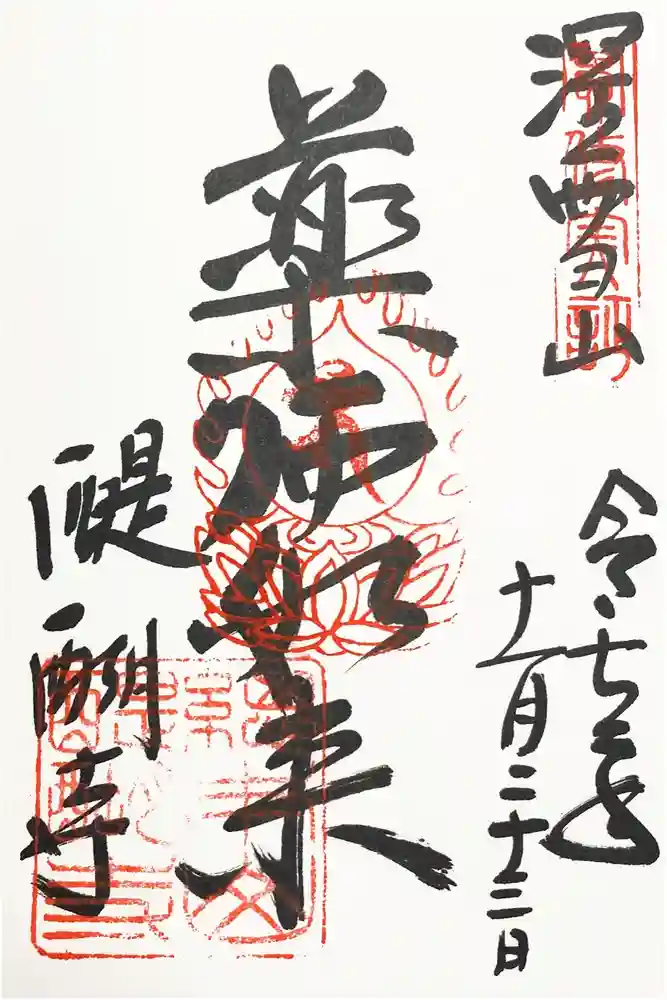 深雪山
令七年
十一月二十三日
薬師如来
醍醐寺